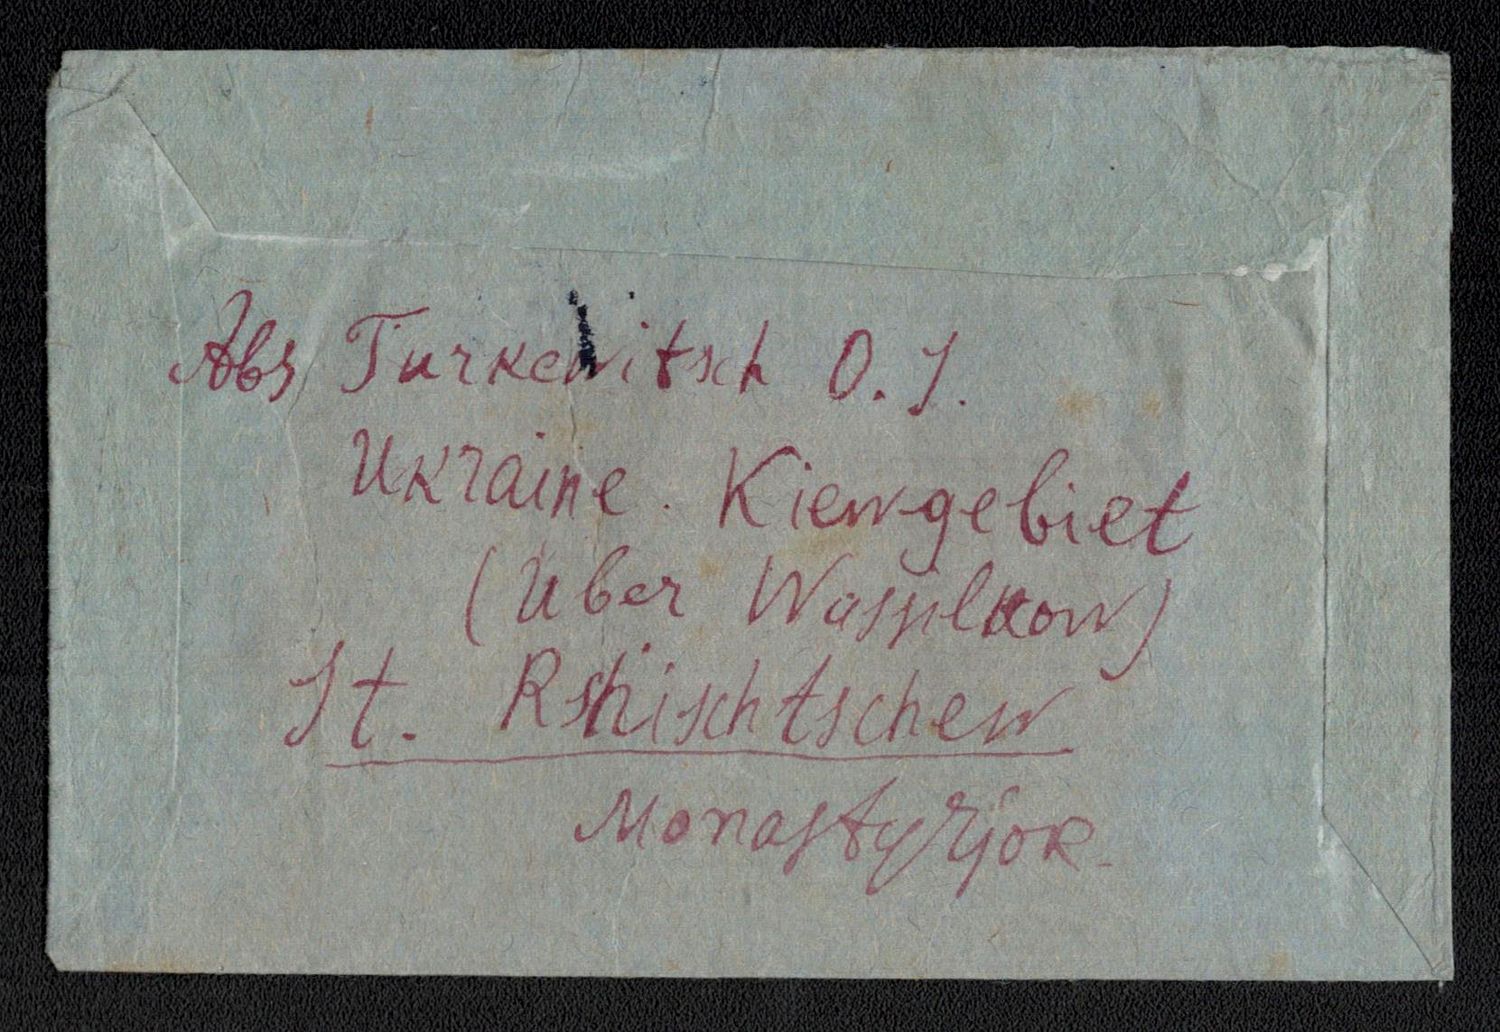 Abs Turkewitsch O. J.
Ukraine. Kiewgebiet
(Über Wassilkow)
St. Rshischtschew
Monastyrjok.